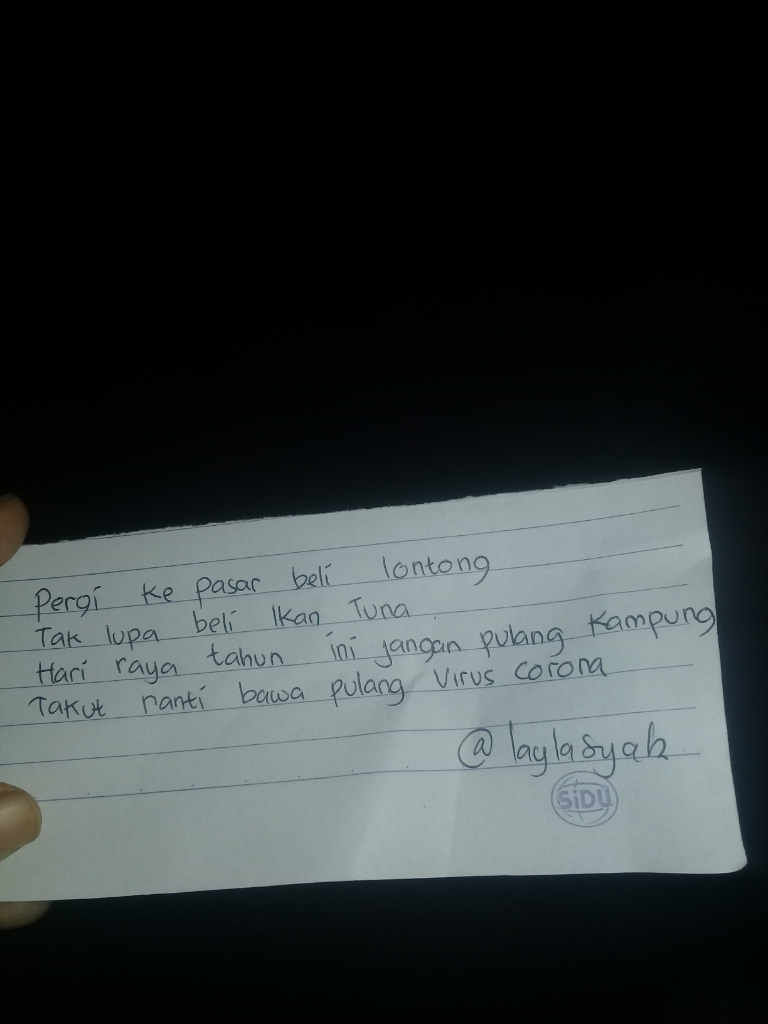 Pergi ke pasar beli lontong
Tak lupa beli Ikan Tuna
Hari raya tahun ini jangan pulang kampung
Takut nanti bawa pulang Virus corona
@laylasyab
SiDU